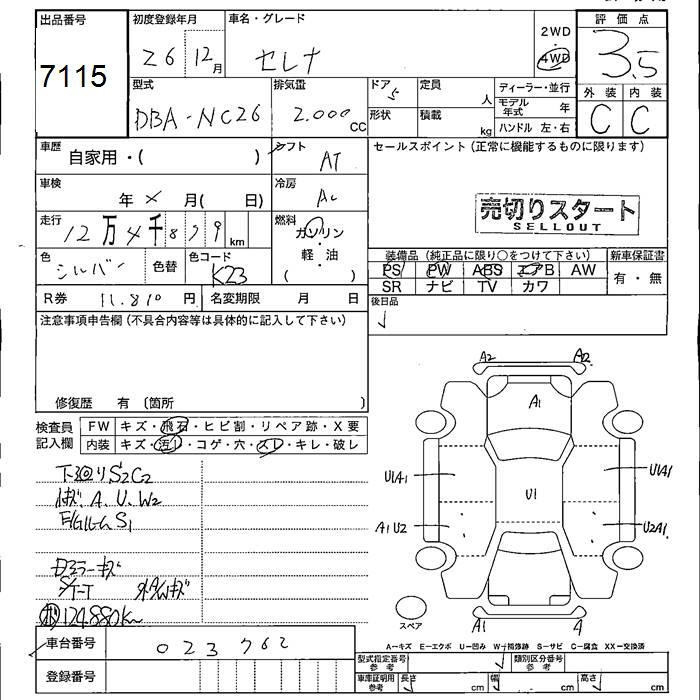 出品番号 初度登録年月 車名・グレード 2WD 評価点
7115 26 12月 セレナ 4WD 3.5
型式 排気量 ドア 定員 人 ディーラー・並行 外装 内装
DBA-NC26 2.000cc 5 形状 積載 kg モデル年式 年 C C
ハンドル 左・右
車歴 自家用・( ) シフト AT セールスポイント（正常に機能するものに限ります）
車検 年 × 月( 日) 冷房 AC
売切りスタート
SELLOUT
走行 12万4千879km 燃料 ガソリン 軽・油 ( )
色 シルバー 色替 色コード K23
装備品（純正品に限り○をつけて下さい） 新車保証書
PS PW ABS エアB AW 有・無
SR ナビ TV カワ
R券 11.810円 名変期限 月 日 後日品
注意事項申告欄（不具合内容等は具体的に記入して下さい）
修復歴 有 〔箇所 〕
検査員記入欄 FW キズ・飛石・ヒビ割・リペア跡・X要
内装 キズ・汚れ・コゲ・穴・スレ・キレ・破レ
下廻りS2C2
キズ.A.U.W2
E/GルームS1
Dミラーキズ
124.880Km
A2 A2
A1
U1A1 U1 U1A1
A1U2 U2A1
スペア A1 A
A－キズ E－エクボ U－凹み W－補修跡 S－サビ C－腐食 XX－交換済
車台番号 023762
登録番号
型式指定番号 参考 類別区分番号 参考
車庫証明用 参考 長さ cm 幅 cm 高さ cm